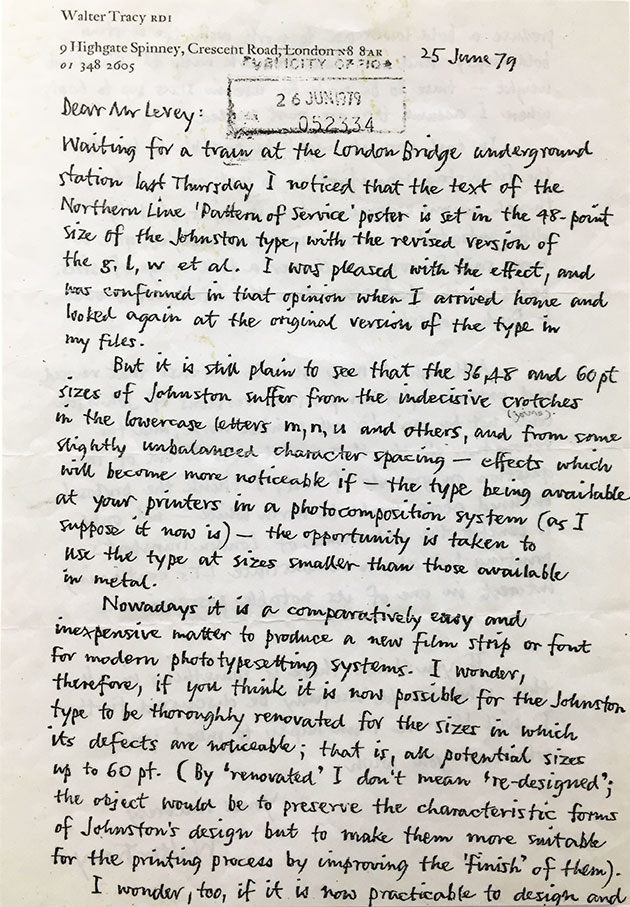 Walter Tracy RDI
9 Highgate Spinney, Crescent Road, London N8 8AR
01 348 2605
25 June 79
PUBLICITY OFFICE
26 JUN 1979
052334
Dear Mr Levey:
Waiting for a train at the London Bridge underground
station last Thursday I noticed that the text of the
Northern Line 'Pattern of Service' poster is set in the 48-point
size of the Johnston type, with the revised version of
the g, l, w et al. I was pleased with the effect, and
was confirmed in that opinion when I arrived home and
looked again at the original version of the type in
my files.
But it is still plain to see that the 36, 48 and 60 pt
sizes of Johnston suffer from the indecisive crotches
(joins)
in the lowercase letters m, n, u and others, and from some
slightly unbalanced character spacing — effects which
will become more noticeable if — the type being available
at your printers in a photocomposition system (as I
suppose it now is) — the opportunity is taken to
use the type at sizes smaller than those available
in metal.
Nowadays it is a comparatively easy and
inexpensive matter to produce a new film strip or font
for modern phototypesetting systems. I wonder,
therefore, if you think it is now possible for the Johnston
type to be thoroughly renovated for the sizes in which
its defects are noticeable; that is, all potential sizes
up to 60 pt. (By 'renovated' I don't mean 're-designed';
the object would be to preserve the characteristic forms
of Johnston's design but to make them more suitable
for the printing process by improving the 'finish' of them).
I wonder, too, if it is now practicable to design and